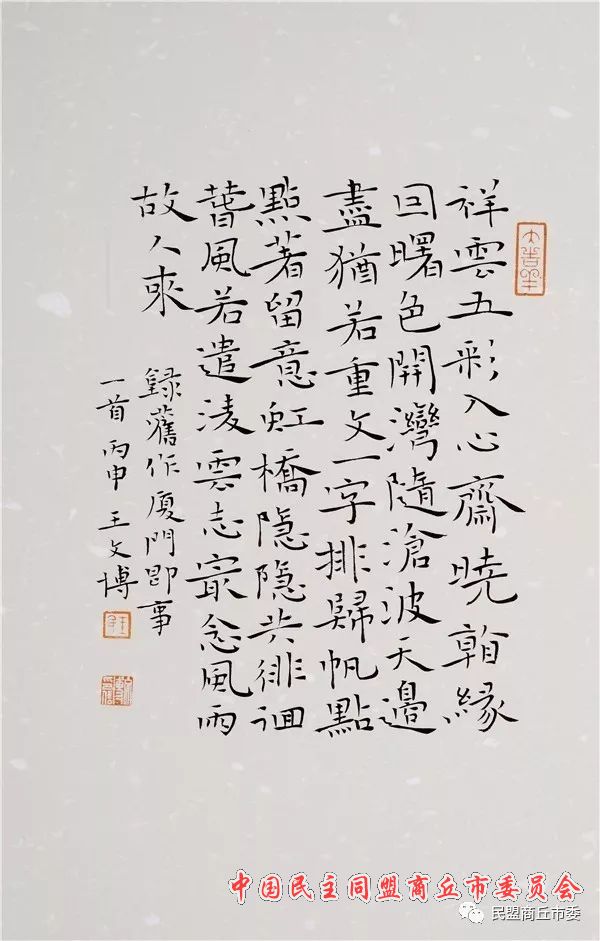 祥雲五彩入心齋曉翰緣
回曙色開灣隨滄波天邊
盡猶若重文一字排歸帆點
點著留意虹橋隐隐共徘徊
風若遣淩雲志㝡念風雨
故人來
錄舊作廈門即事
一首 丙申 王文博
大吉羊
中国民主同盟商丘市委员会
民盟商丘市委